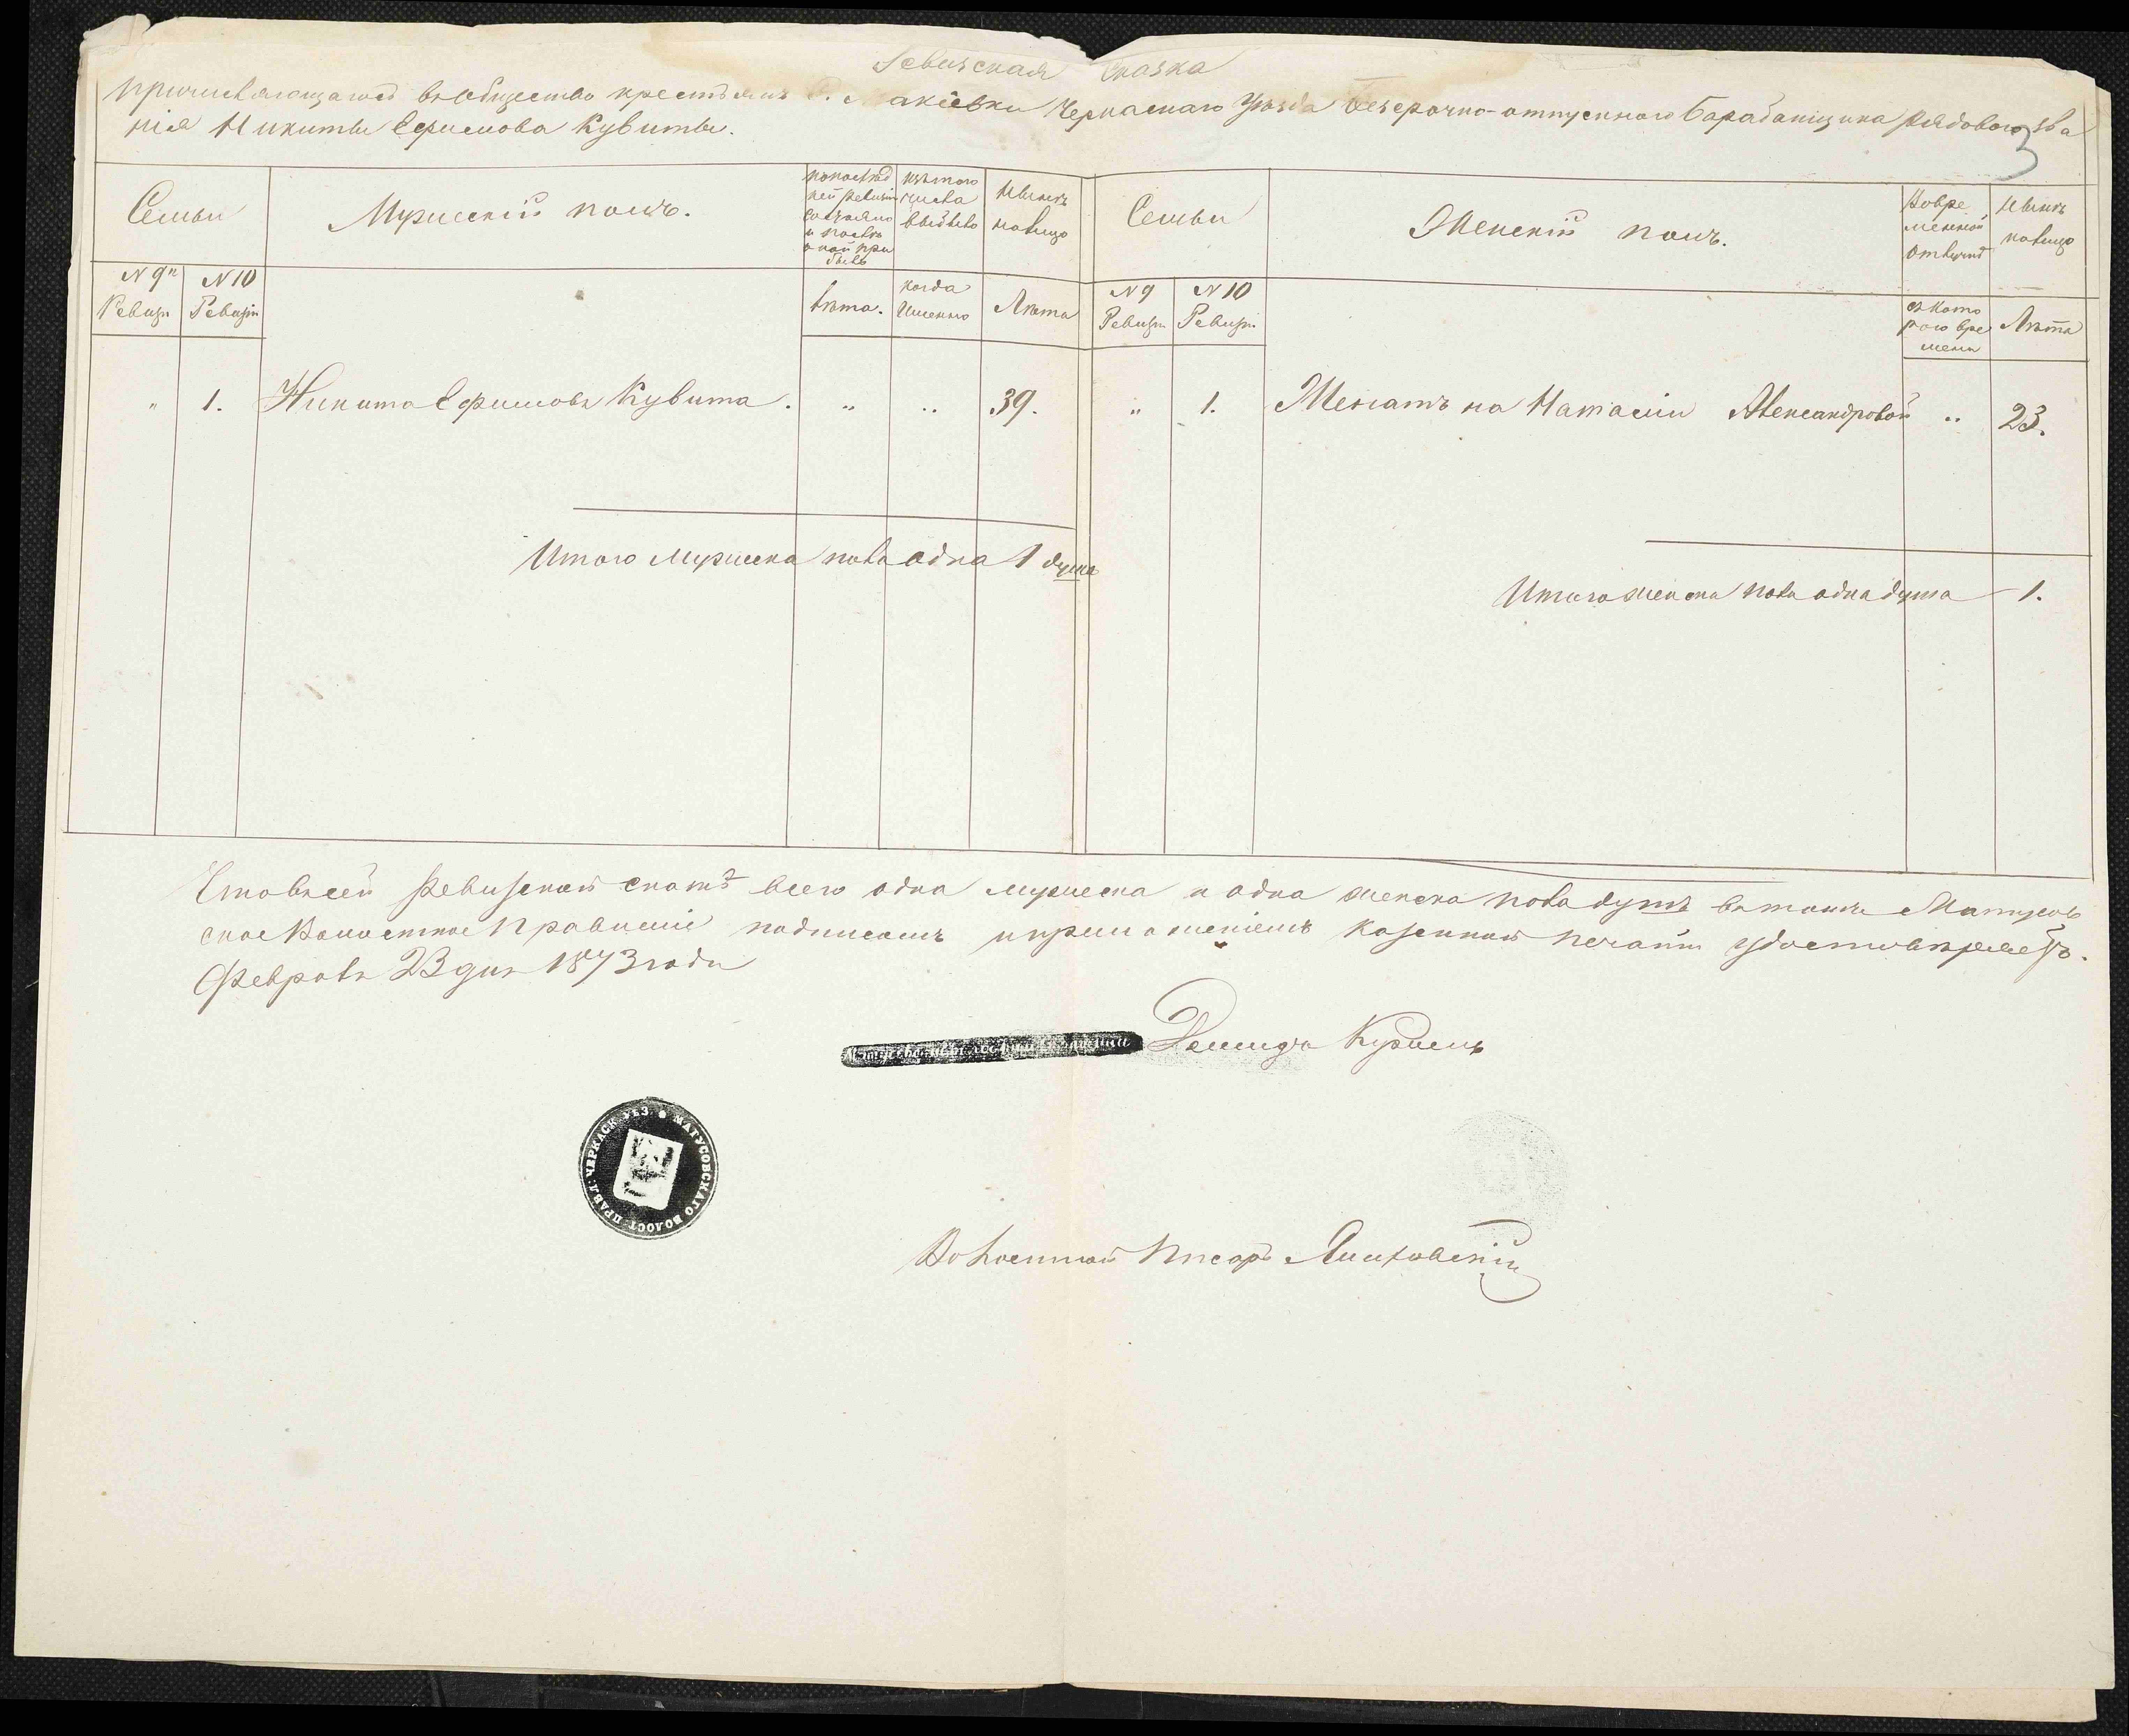 Ревизская Сказка
причисляющагося въ общество крестьянъ С. Макіевки Черкаскаго Уѣзда безсрочно-отпускного Барабанщика рядоваго зва
нія Никиты Ефимова Кувиты.
3
Семьи
Мужескій полъ.
по послѣд
ней ревизіи
состояло
и послѣ
оной при
было
изъ того
числа
выбыло
Нынѣ
налицо
Семьи
Женскій полъ.
Во вре
менной
отлучкѣ
Нынѣ
налицо
N 9й
Ревизи
N 10
Ревизіи
Лѣта.
когда
Именно
Лѣта
N 9
Ревизіи
N 10
Ревизіи
съ кото
раго вре
мени
Лѣта
" 1. Никита Ефимовъ Кувита. " " 39. " 1. Женатъ на Наталіи Александровой " 23.
Итого мужеска пола одна 1 душа
Итого женска пола одна душа 1.
Что въ сей Ревизской сказкѣ всего одна мужеска и одна женска пола душъ въ томъ Матусов
ское Волостное Правленіе подписомъ и приложеніемъ казенной печати удостовѣряетъ.
Февраля 23 дня 1873 года
Демидъ
Волостной Писарь
МАТУСОВСКАГО ВОЛОСТ. ПРАВЛ. ЧЕРКАСК. УЕЗ.